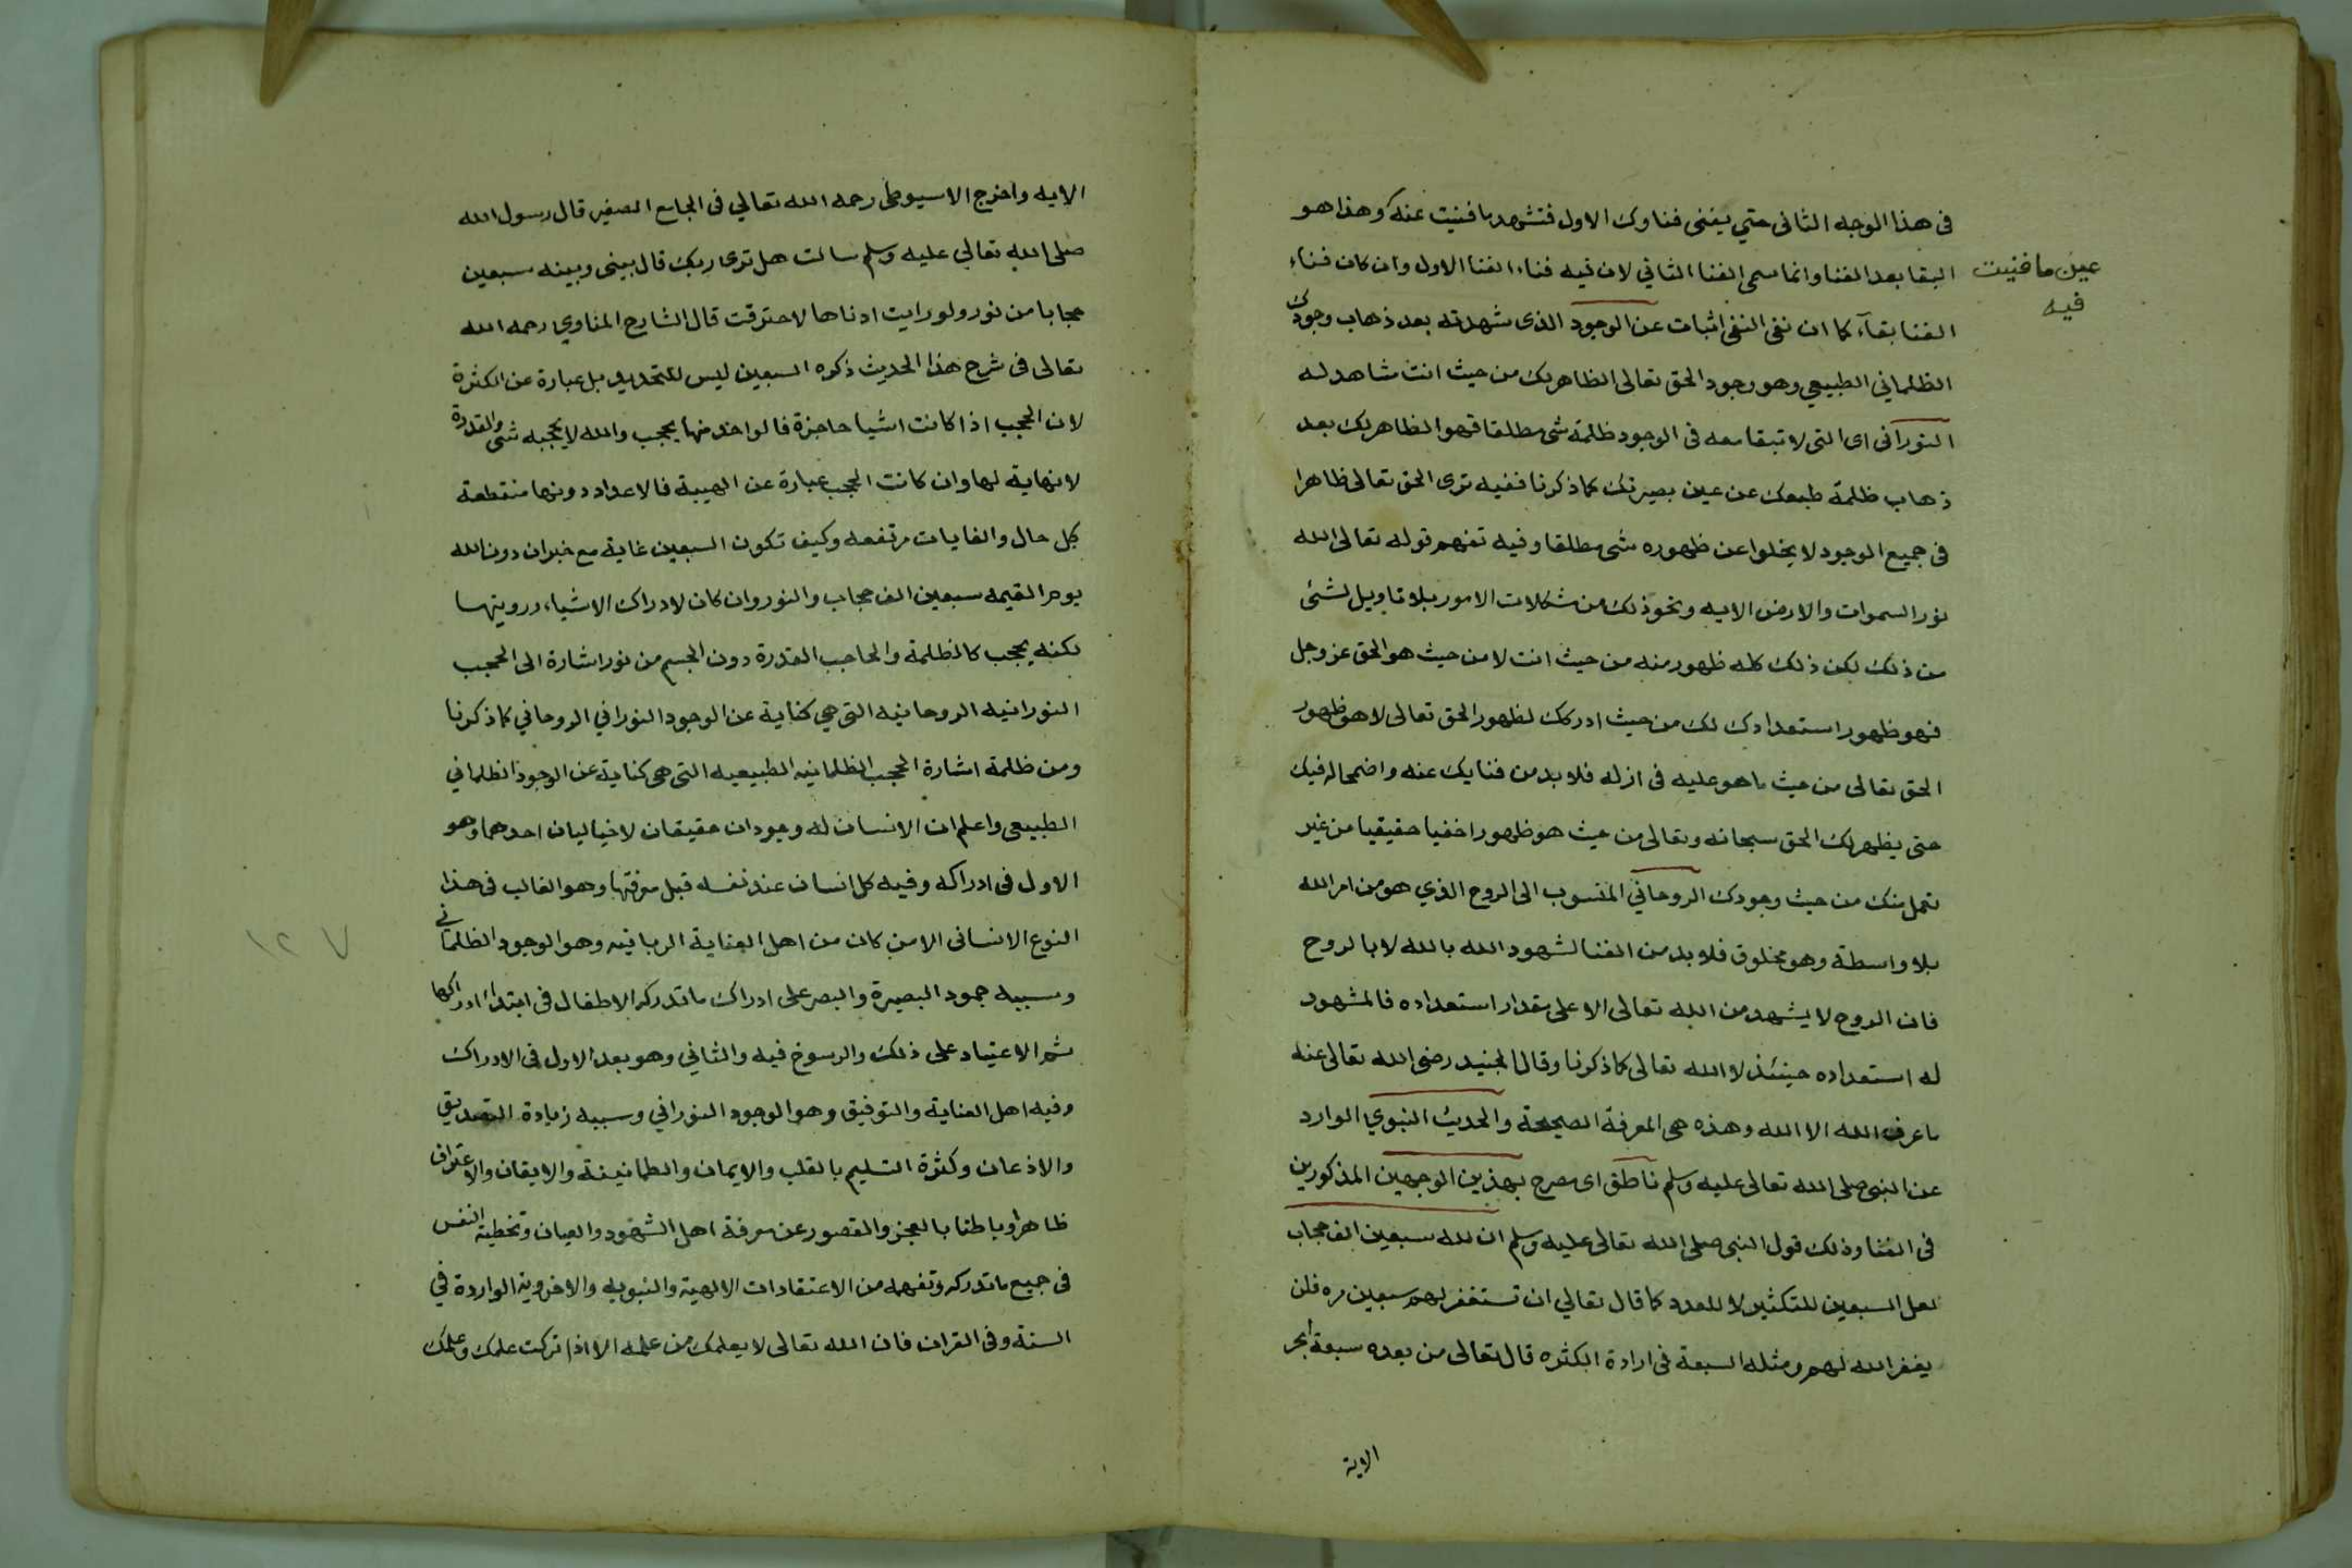 في هذا الوجه الثاني حتي يفنى فناوك الاول فتشهد ما فنيت عنه وهذا هو
عين ما فنيت
فيه
البقا بعد الفنا وانما سمى الفنا الثاني لان فيه فناء الفنا الاول وان كان فناء
الفنا بقآء كما ان نفى النفى اثبات عن الوجود الذى شهدته بعد ذهاب وجودك
الظلماني الطبيعي وهو وجود الحق تعالى الظاهر بك من حيث انت شاهد له
النوراني اى التى لا تبقا معه فى الوجود ظلمة شى مطلقا فهو الظاهر بك بعد
ذهاب ظلمة طبعك عن عين بصيرتك كما ذكرنا ففيه ترى الحق تعالى ظاهرا
فى جميع الوجود لا يخلوا عن ظهوره شى مطلقا وفيه تفهم قوله تعالى الله
نور السموات والارض الايه ونحو ذلك من مشكلات الامور بلا تاويل لشئ
من ذلك لكن ذلك كله ظهور منه من حيث انت لا من حيث هو الحق عز وجل
فهو ظهور استعدادك لك من حيث ادركك لظهور الحق تعالى لا هو ظهور
الحق تعالى من حيث ما هو عليه فى ازله فلا بد من فنايك عنه واضمحاله فيك
حتى يظهر لك الحق سبحانه وتعالى من حيث هو ظهورا خفيا حقيقيا من غير
تحمل منك من حيث وجودك الروحاني المنسوب الى الروح الذي هو من امر الله
بلا واسطة وهو مخلوق فلا بد من الفنا لشهود الله بالله لا بالروح
فان الروح لا يشهد من الله تعالى الا على مقدار استعداده فالمشهود
له استعداده حينئذ لا الله تعالى كما ذكرنا وقال الجنيد رضى الله تعالى عنه
ما عرف الله الا الله وهذه هى المعرفة الصحيحة والحديث النبوي الوارد
عن النبى صلى الله تعالى عليه وسلم ناطق اى مصرح بهذين الوجهين المذكورين
فى الفنا وذلك قول النبى صلى الله تعالى عليه وسلم ان لله سبعين الف حجاب
لعل السبعين للتكثير لا للعدد كما قال تعالي ان تستغفر لهم سبعين مره فلن
يغفر الله لهم ومثله السبعة فى ارادة الكثره قال تعالى من بعده سبعة ابحر
الاية
الايه واخرج الاسيوطى رحمه الله تعالي فى الجامع الصغير قال رسول الله
صلى الله تعالي عليه وسلم سالت هل ترى ربك قال بينى وبينه سبعين
حجابا من نور ولو رايت ادناها لاحترقت قال الشارح المناوي رحمه الله
تعالى فى شرح هذا الحديث ذكره السبعين ليس للتحديد بل عبارة عن الكثرة
لان الحجب اذا كانت اشيا حاجزة فالواحد منها يحجب والله لا يحجبه شى والقدرة
لا نهاية لها وان كانت الحجب عبارة عن الهيبة فالاعداد دونها منقطعة
بكل حال والغايات مرتفعه وكيف تكون السبعين غاية مع خبر ان دون الله
يوم القيمه سبعين الف حجاب والنور وان كان لادراك الاشياء ورويتها
لكنه يحجب كالظلمة والحاجب القدرة دون الجسم من نور اشارة الى الحجب
النورانيه الروحانيه التى هي كناية عن الوجود النوراني الروحاني كما ذكرنا
ومن ظلمة اشارة الحجب الظلمانيه الطبيعيه التى هى كناية عن الوجود الظلماني
الطبيعى واعلم ان الانسان له وجودان حقيقان لا خياليان احدهما وهو
الاول فى ادراكه وفيه كل انسان عند نفسه قبل معرفتها وهو الغالب فى هذا
النوع الانسانى الا من كان من اهل العناية الربانيه وهو الوجود الظلماني
وسببه جمود البصيرة والبصر على ادراك ما تدركه الاطفال فى ابتداء ادراكها
ثم الاعتياد على ذلك والرسوخ فيه والثاني وهو بعد الاول فى الادراك
وفيه اهل العناية والتوفيق وهو الوجود النوراني وسببه زيادة التصديق
والاذعان وكثرة التسليم بالقلب والايمان والطمانينة والايقان والاعتراف
ظاهرا وباطنا بالعجز والقصور عن معرفة اهل الشهود والعيان وتخطية النفس
فى جميع ما تدركه وتفهمه من الاعتقادات الالهية والنبويه والاخرويه الواردة في
السنة وفى القران فان الله تعالى لا يعلمك من علمه الا اذا تركت علمك وعلمك
١٢٧